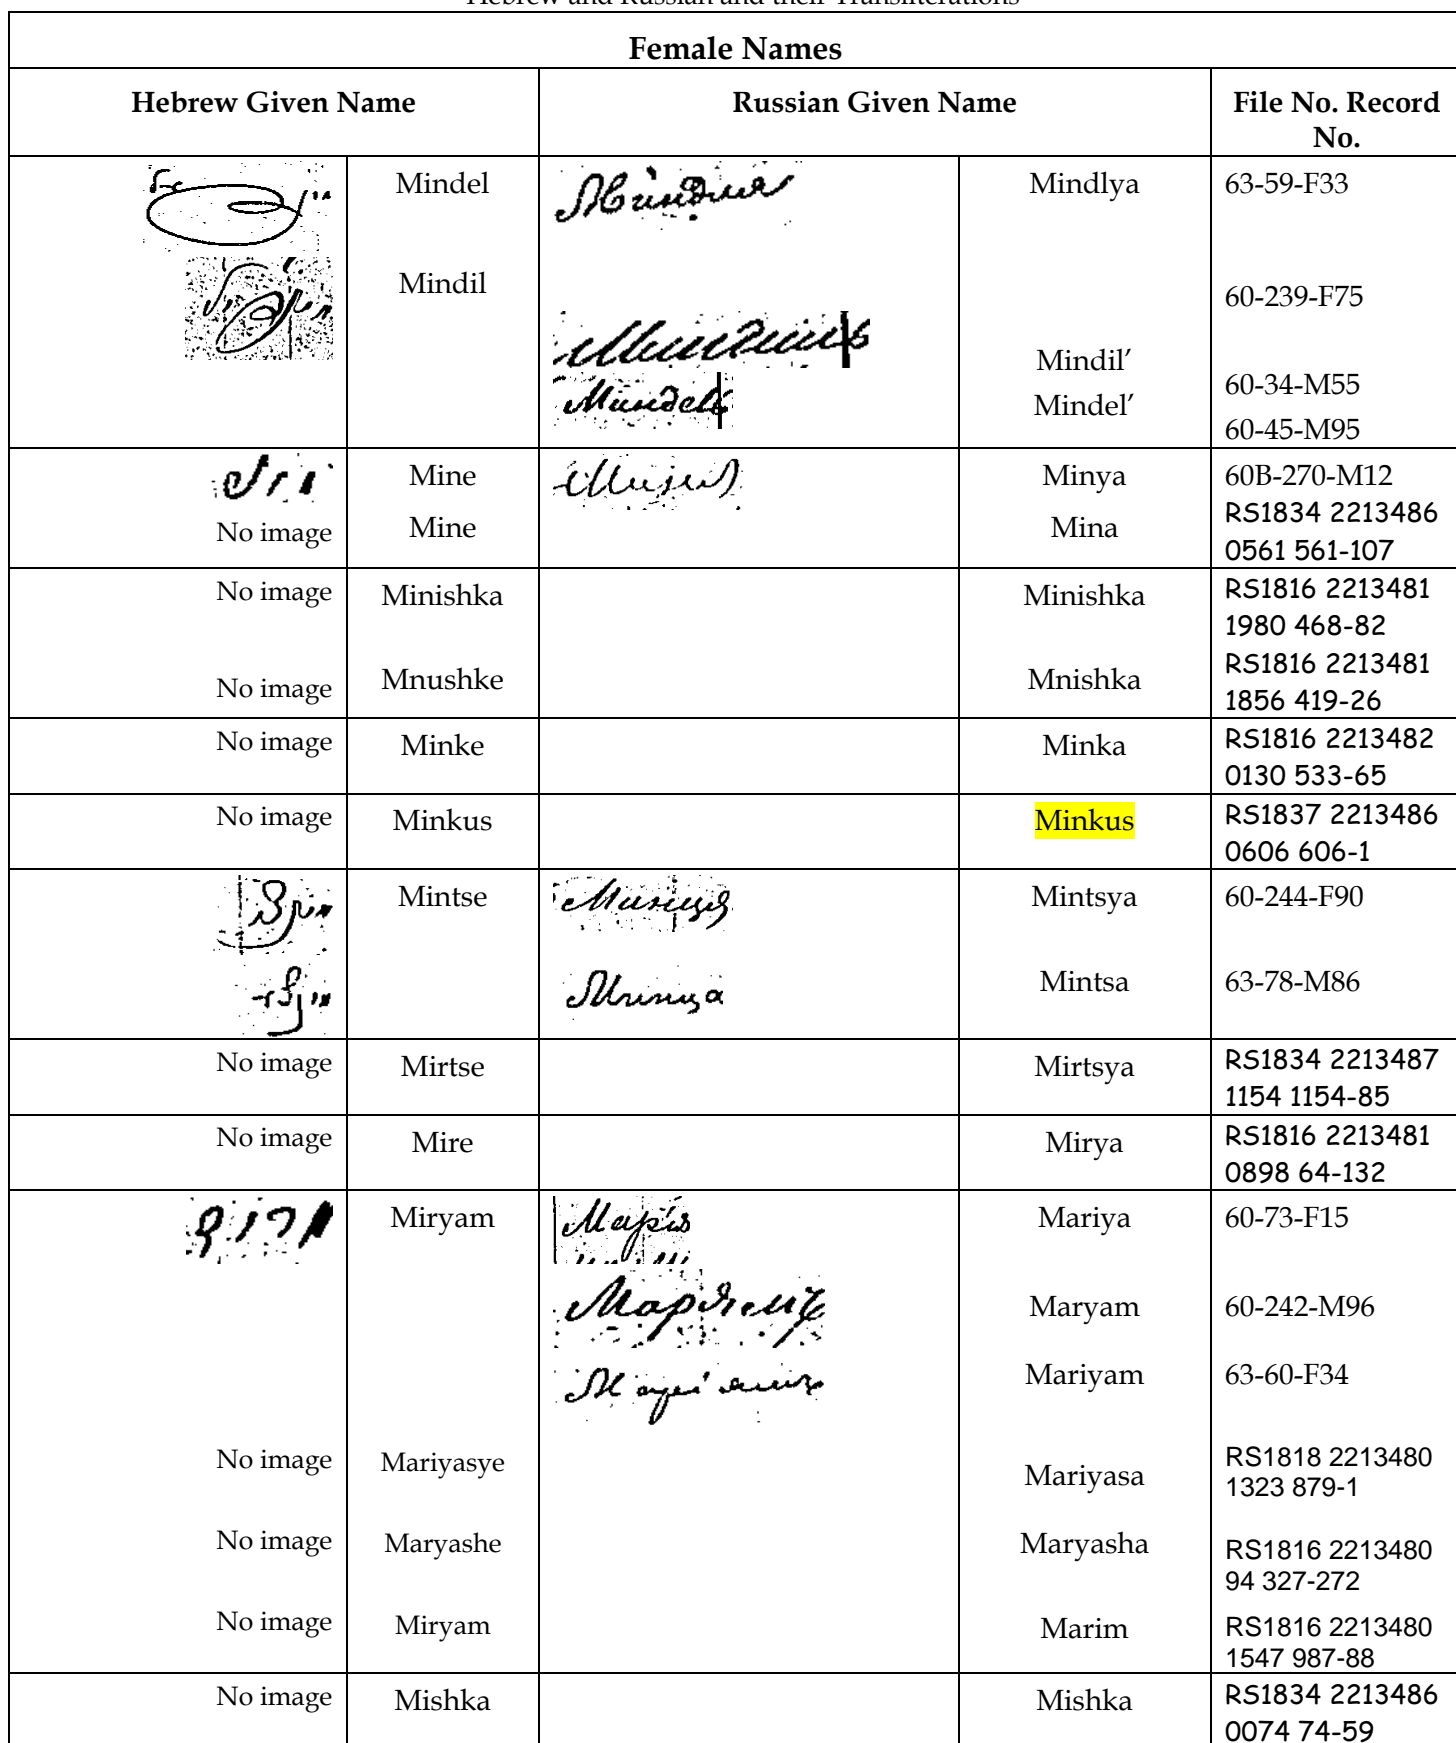 Hebrew and Russian and their Transliterations
Female Names
Hebrew Given Name Russian Given Name File No. Record No.
Mindel Миндля Mindlya 63-59-F33
Mindil 60-239-F75
Миндиль Mindil’ 60-34-M55
Миндель Mindel’ 60-45-M95
מינע Mine Миня Minya 60B-270-M12
No image Mine Mina RS1834 2213486
0561 561-107
No image Minishka Minishka RS1816 2213481
1980 468-82
No image Mnushke Mnishka RS1816 2213481
1856 419-26
No image Minke Minka RS1816 2213482
0130 533-65
No image Minkus Minkus RS1837 2213486
0606 606-1
Mintse Минця Mintsya 60-244-F90
Минца Mintsa 63-78-M86
No image Mirtse Mirtsya RS1834 2213487
1154 1154-85
No image Mire Mirya RS1816 2213481
0898 64-132
מרים Miryam Марія Mariya 60-73-F15
Марямъ Maryam 60-242-M96
Маріямъ Mariyam 63-60-F34
No image Mariyasye Mariyasa RS1818 2213480
1323 879-1
No image Maryashe Maryasha RS1816 2213480
94 327-272
No image Miryam Marim RS1816 2213480
1547 987-88
No image Mishka Mishka RS1834 2213486
0074 74-59